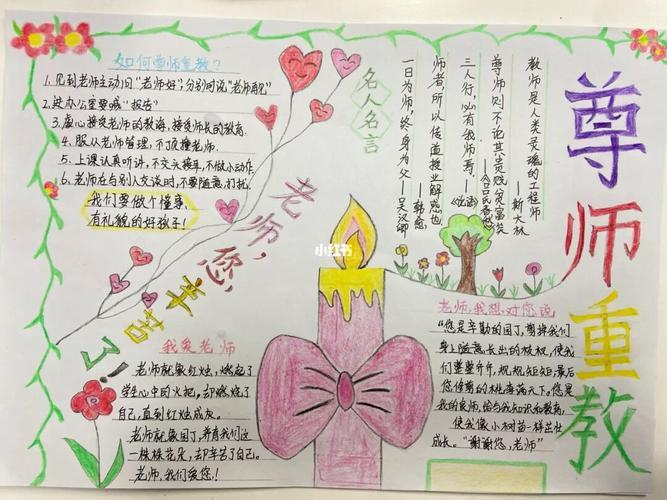 尊师重教
如何尊师重教？
1.见到老师主动问"老师好"，分别时说"老师再见"
2.进办公室要喊"报告"
3.虚心接受老师的教诲，接受师长的教育
4.服从老师管理，不顶撞老师.
5.上课认真听讲，不交头接耳，不做小动作.
6.老师在与别人交谈时，不要随意打扰
我们要做个懂事，
有礼貌的好孩子！
名人名言
教师是人类灵魂的工程师
——斯大林
尊师则不论其贵贱贫富矣
——《吕氏春秋》
三人行，必有我师焉.——《论语》
师者，所以传道授业解惑也
——韩愈
一日为师，终身为父——关汉卿
老师，您，
辛苦了！
小红书
我爱老师
老师就像红烛，燃起了
学生心中的火把，却燃烧了
自己，直到红烛成灰.
老师就像园丁，养育我们这
一株株花朵，却辛苦了自己.
老师，我们爱您！
老师，我想对您说
"您是辛勤的园丁，剪掉我们
身上随意长出的枝杈，使我
们整整齐齐，规规矩矩，最后
您修剪的桃李满天下。您是
我的良师，给与我知识和教育，
使我像小树苗一样茁壮
成长。"谢谢您，老师"